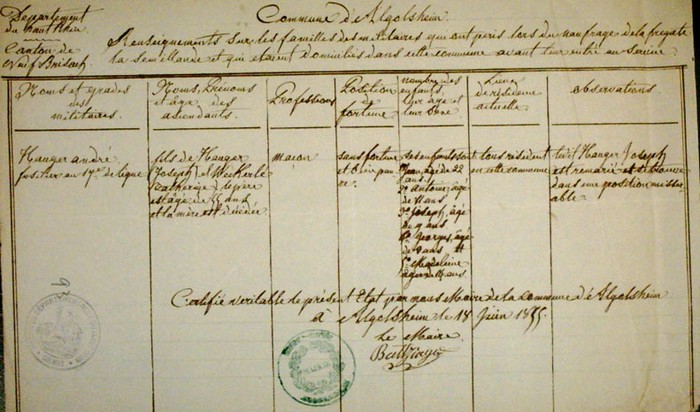 Département
du haut Rhin
Canton de
Neuf Brisach
Commune d'Algolsheim
Renseignements sur les familles des militaires qui ont péris lors du naufrage de la frégate
la Semillante et qui étaient domiciliés dans cette commune avant leur entré au Service
Noms et grades
des
militaires.
Noms, Prénoms
et age des
ascendants.
Profession
Position
de
fortune
nombre des
enfants,
leur age et
leur sexe
Lieux
de résidence
actuelle.
observations
Hauger andré
fusilier au 17e de ligne
fils de Hauger
Joseph et
Catherine le père
est agé de 55 ans
et la mère est décédée
maçon
sans fortune
et bien pau-
re.
ses enfants sont
1° agé de 22
ans
2° antoine, agé
de 11 ans
3° Joseph, agé
de 9 ans
4° Georges, agé
de ans et
5° Magdeleine
agée de ans.
tous résident
en cette commune
ledit Hauger Joseph
est remarié et se trouve
dans une position misér-
able
Certifié véritable le présent Etat par nous Maire de la commune d'Algolsheim
à Algolsheim le 18 Juin 1855.
Le Maire